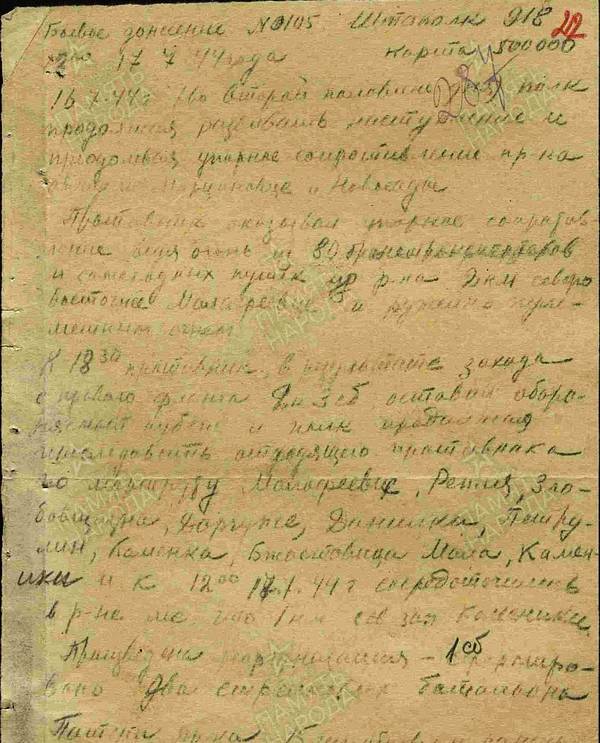 Боевое донесение №0105 Штаполк 918 22
12⁰⁰ 17 7 44 года карта 500000
16.7.44 г во второй половине дня полк
продолжая развивать наступление и
преодолевая упорное сопротивление пр-ка
и Новосады
Противник оказывал упорное сопротив-
ление ведя огонь из 80 бронетранспортеров
и самоходных пушек из р-на 2 км северо
восточнее и ружейно пуле-
метным огнем
К 18³⁰ противник, в результате захода
с правого фланга 2 и 3 сб оставил оборо-
няемый рубеж и полк продолжая
преследовать отходящего противника
по маршруту Малафеевце, Репля, Зло-
бовщизна, Даргуже, Данилки, Петру-
лин, Каменка, Бжостовица Мала, Камен-
ики и к 12⁰⁰ 17.7.44 г сосредоточился
в р-не что 1 км сев зап Каменики.
Произведена реорганизация - 1 сб
два стрелковых батальона
Потери пр-ка